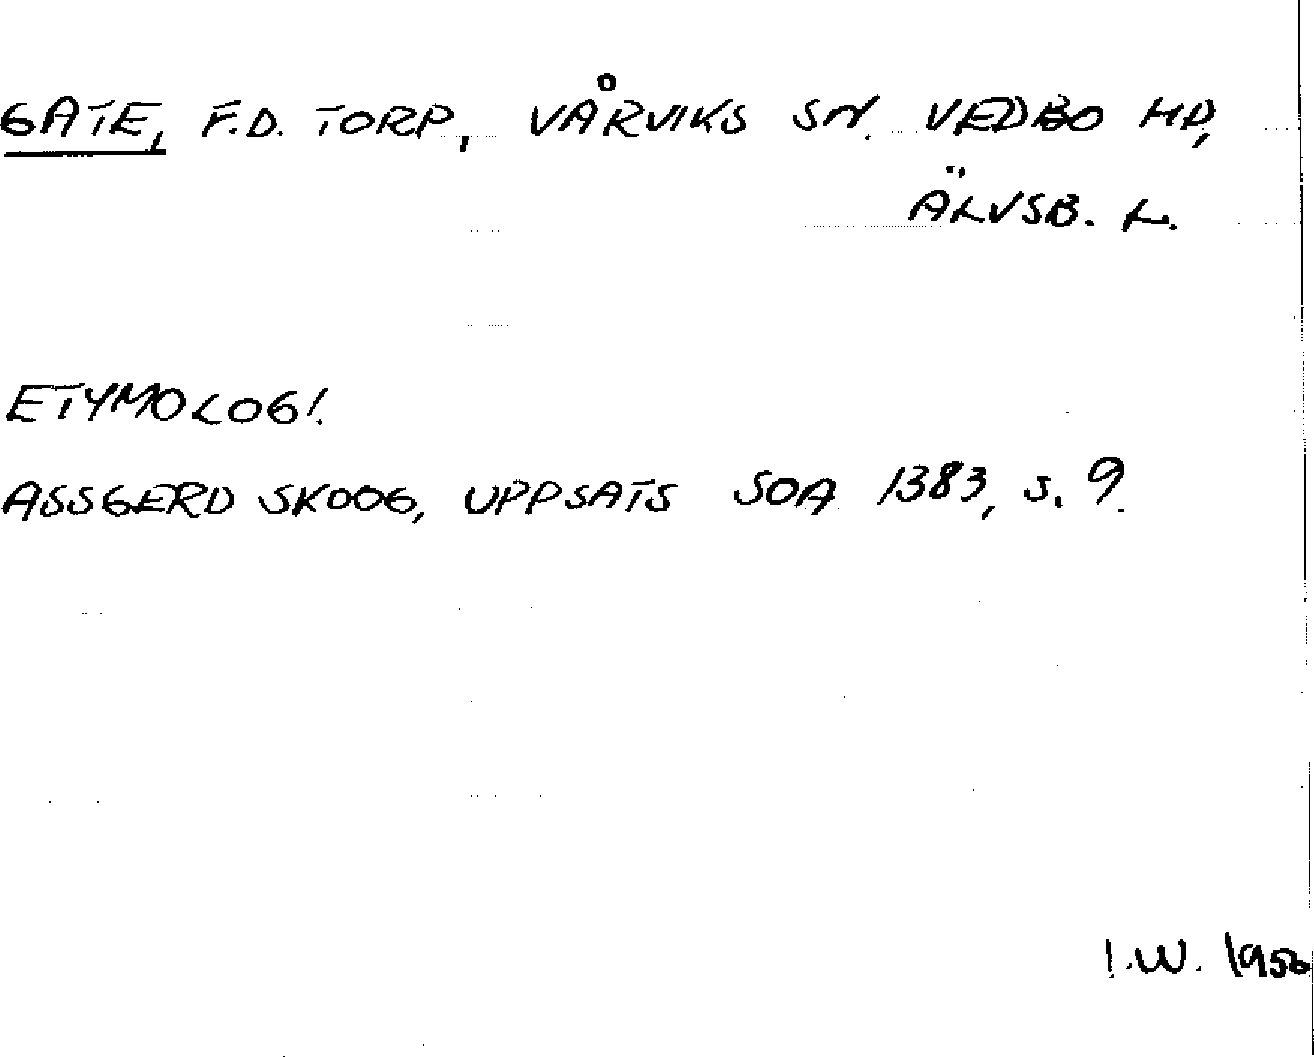 GATE, F.D. TORP, VÅRVIKS SN. VEDBO HD,
ÄLVSB. L.
ETYMOLOGI.
ASSGERD SKOOG, UPPSATS SOA 1383, S. 9.
I.W.